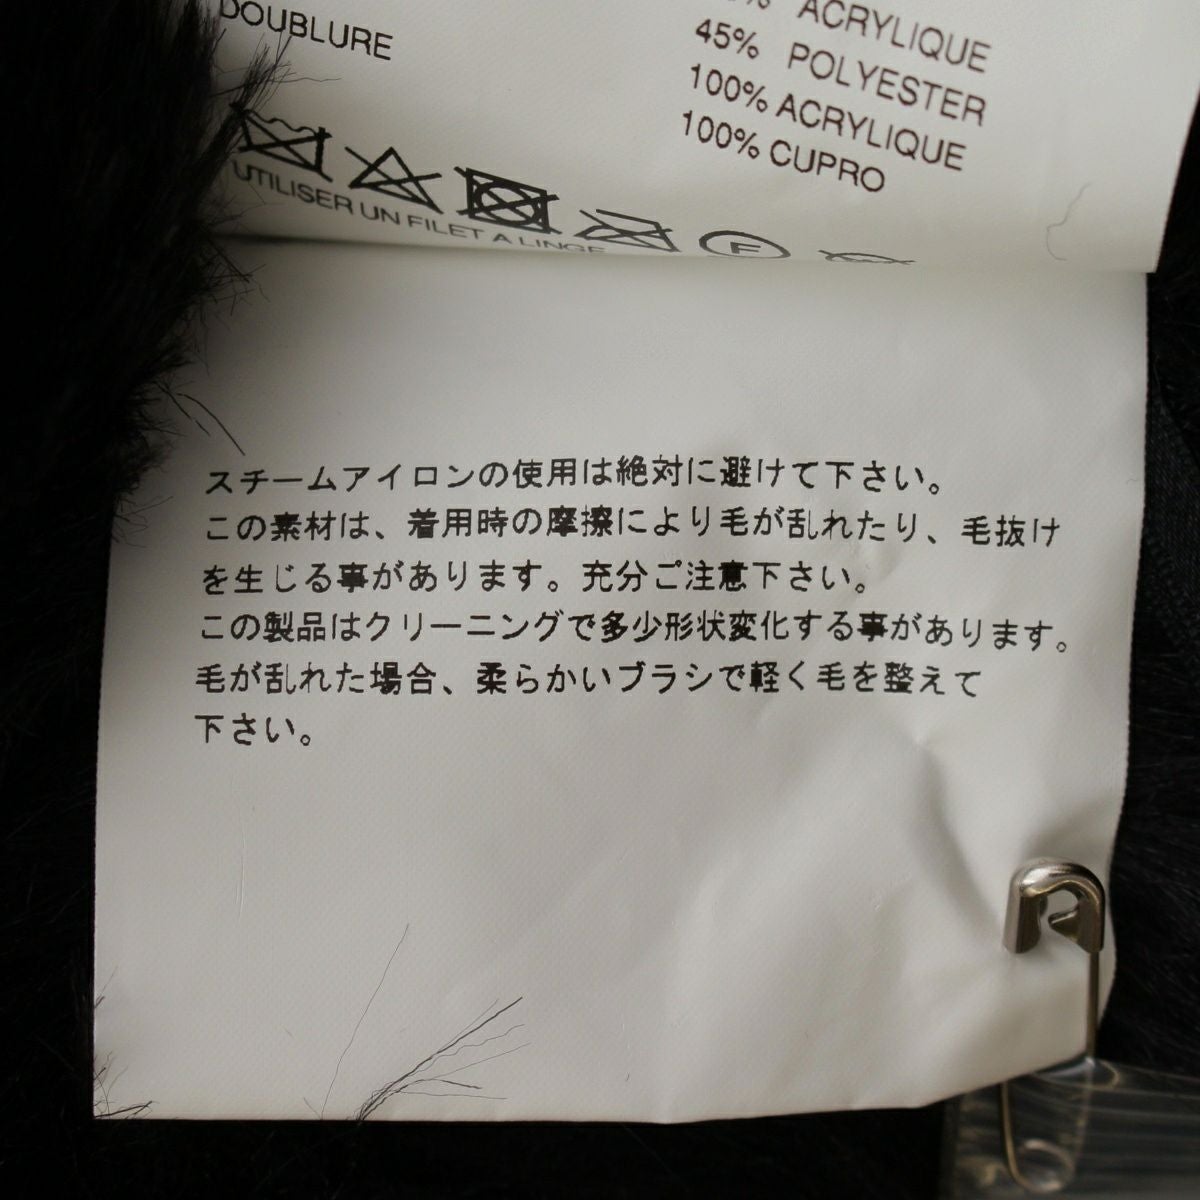 DOUBLURE
ACRYLIQUE
45% POLYESTER
100% ACRYLIQUE
100% CUPRO
F
UTILISER UN FILET A LINGE
スチームアイロンの使用は絶対に避けて下さい。
この素材は、着用時の摩擦により毛が乱れたり、毛抜け
を生じる事があります。充分ご注意下さい。
この製品はクリーニングで多少形状変化する事があります。
毛が乱れた場合、柔らかいブラシで軽く毛を整えて
下さい。